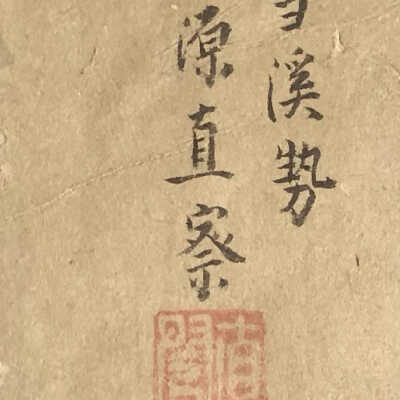 溪勢
源直察